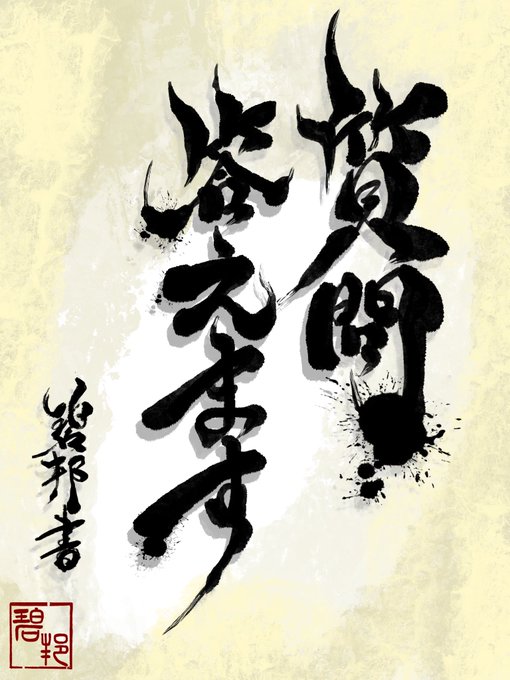 質問
答えます
碧邦書
碧邦